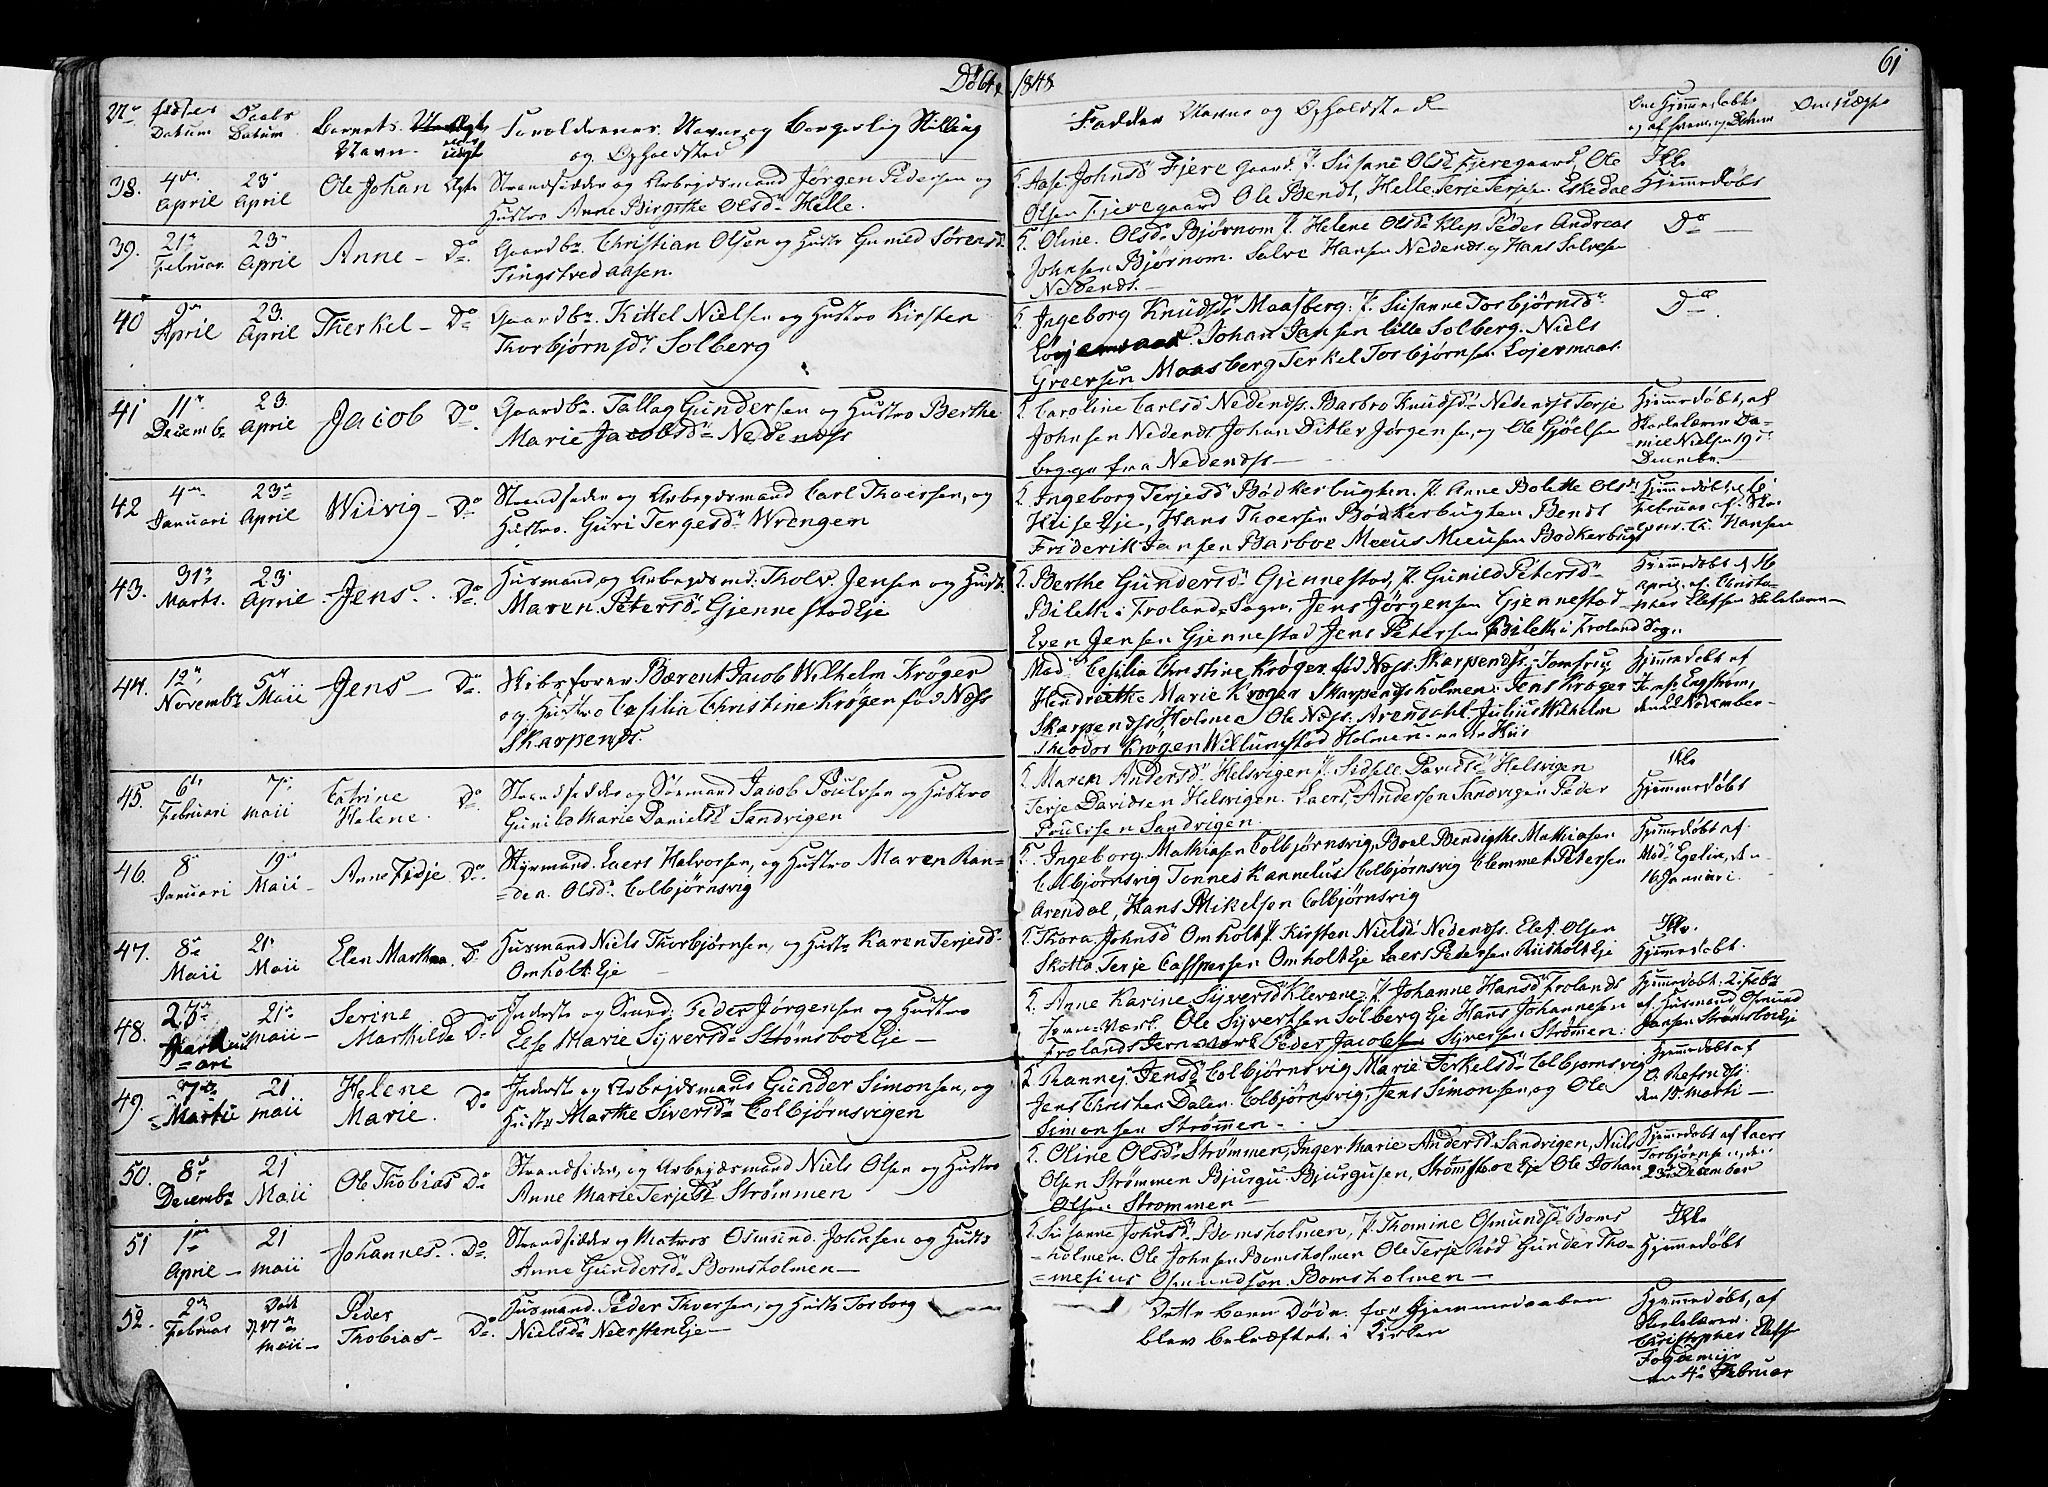 Døbte 1848 61
No Fødsels Datum Daabs Datum Barnets Navn Ægte eller uægte Forældrenes Navne og Borgerlig Stilling og Opholdsted
Fadder Navne og Opholdsted Om Hjemmedøbt og af hvem, og Datum
38. 4de April 23de April Ole Johan Ægte Strandsidder og Arbejdsmand Jørgen Pedersen og
Hustro Anne Birgithe Olsdr Helle.
F. Aase Johnsdr Fjere Gaard. J. Susane Olsdr Fjeregaard, Ole
Olsen Fjeregaard Ole Bendt, Helle Terje Terjes. Eskedal
Ikke Hjemmedøbt
39. 21de Februar 23de April Anne Do Gaardbr. Christian Olsen og Hustr Gunild Sørensd.
Tingstvedaasen.
F. Oline Olsdr Bjørnom J. Helene Olsdr Klep. Peder Andreas
Johnsen Bjørnom. Salve Hansen Nedends. og Hans Salvesen
Nedends.
Do
40 9de April 23. April Therkel Do Gaardbr. Kittel Nielsen og Hustro Kirsten
Thorbjørnsdr Solberg
F. Ingeborg Knudsdr Maasberg. J. Susanne Torbjørnsdr
Johan Jansen lille Solberg. Niels
Greersen Maasberg Terkel Torbjørnsen Løjermaas.
Do
41 11te Decembr 23. April Jacob Do Gaardbr. Tallag Gundersen og Hustro Berthe
Marie Jacobsdr Nedenæs
F. Caroline Carlsd Nedendss. Barbro Knudsdr Nedendss Terje
Johnsen Nedends Johan Ditlev Jørgensen, og Ole Gjøelsen
begge fra Nedendss
Hjemmedøbt, af
Skolelærer Daniel Nielsen 19de
Decembr.
42 4de Januari 23de April Wiivig Do Strandsider og Arbejdsmand Carl Thoersen, og
Hustro. Guri Tergesdr Wrengen
F. Ingeborg Terjesdr Bødkerbugten. J. Anne Bolette Olsdr
Eje, Hans Thoersen Bødkerbugten Bendt
Friderik Jansen Barboe Meeus Meeusen Bødkerbugt
Hjemmedøbt
Februar af
Hansen
43. 31te Marts. 23de April Jens. Do Husmand og Arbejdsmd. Tholv Jensen og Hustr.
Maren Petersdr GjennestadEje
F. Berthe Gundersdr Gjennestad, J. Gunild Petersdr
Bileth i Froland Sogn, Jens Jørgensen Gjennestad
Even Jensen Gjennestad Jens Petersen Bileth i Froland Sogn.
Hjemmedøbt
April. af Christopher Elefsen Skolelærer
44. 12te Novembr 5te Maii Jens Do Skibsfører Bærent Jacob Wilhelm Krøger
og Hustro Cesilia Christine Krøger fød Næss
Skarpends.
Mad: Cesilia Christine Krøger fød Næss. Skarpendss. Jomfru
Hendriette Marie Krøger Skarpendss holmen. Jens Krøger
Skarpendss Holmen Ole Næss. Arendahl. Julius Wilhelm
Theodor Krøger Holmen
Hjemmedøbt af
Engstrøm,
den November
45. 6te Februari 7de Maii Catrine Helene. Do Strandsidder og Sømand Jacob Poulssen og Hustro
Gunild Marie Danielsdr Sandvigen
F. Maren Andersdr Helsvigen J. Sidsell Davidsdr Helsvigen
Terje Davidsen Helsvigen. Laers Andersen Sandvigen Peder
Poulssen Sandvigen.
Ikke Hjemmedøbt
46. 8de Januari 19de Maii Anne Fidje Do Styrmand Laers Halvorsen, og Hustro Maren Randea Olsdr Colbjørnsvig
F. Ingeborg Mathiasen Colbjørnsvig, Boel Bendigthe Mathiasen
Colbjørnsvig Tønnes Kannelus Colbjørnsvig Clemmet Petersen
Arendal, Hans Mikelsen Colbjørnsvig
Hjemmedøbt af
Mad. Egelin, den
16 Januari.
47. 8de Maii 21de Maii Elen Marthea Do Husmand Niels Thorbjørnsen, og Hustr Karen Terjesdr
Omholt Eje
F. Thora Johnsd Omholt J. Kirsten Nielsdr Nedendss. Elef Olsen
Skotta Terje Caspersen Omholt Eje Laers Pedersen Eje
Ikke Hjemmedøbt.
48. 27de Januari 21de Maii Serine Marthilde Do Inderste og Smed: Peder Jørgensen og Hustro
Else Marie Sijversdr Strømsboe Eje
F. Anne Karine Sijversdr Klevene J. Johanne Hansdr Frolands
Jernværk. Ole Sijvertsen Solberg Eje Hans Johannesen
Frolands Jernværk Peder Jacobsen Sijversen Strømmen.
Hjemmedøbt. 2 Febr
af Husmand Osmund
Jansen Strømsboe Eje
49. 7de Marti 21 Maii Helene Marie. Do Inderste og Arbejdsmand Gunder Simonsen, og
Hustr Marthe Siversdr Colbjørnsvigen
F. Rannej Jensdr Colbjørnsvig Marie Terkelsdr Colbjørnsvig
Jens Christen Dalen. Colbjørnsvig, Jens Simonsen, og Ole
Simonsen Strømmen.
Hjemmedøbt af
O. Refsnes
den 15 Marti
50. 8de Decembr 21 Maii Ole Thobias Do Strandsider, og Arbejdsmand Niels Olsen og Hustro
Anne Marie Terjesdr Strømmen
F. Oline Olsdr Strømmen, Inger Marie Andersdr Sandvigen, Niels
Olsen Strømmen Bjurgu. Bjurgusen, Strømsboe Eje Ole Johan
Olsen Strømmen
Hjemmedøbt af Laers
Torbjørnsen, den
23de December
51 1te April 21 Maii Johannes. Do Strandsidder og Matros Osmund Johnsen og Hustr
Anne Gundersdr Bomsholmen
F. Susanne Johnsdr Bomsholmen, J. Thomine Osmundsdr Bomsholmen. Ole Johnsen Bomsholmen Ole Terje Rød Gunder Thomesius Osmundsen Bomsholmen
Ikke Hjemmedøbt
52. 2de Februar Død Maii Peder Thobias Do Husmand Peder Thversen, og Hustr Torborg
Nielsdr Neersten Eje
Dette barn Døde før Hjemmedaaben
blev bekræftet i Kirken
Hjemmedøbt, af
Skolelærer
Christopher Elefs
Fogdemijr
den 4de Februar